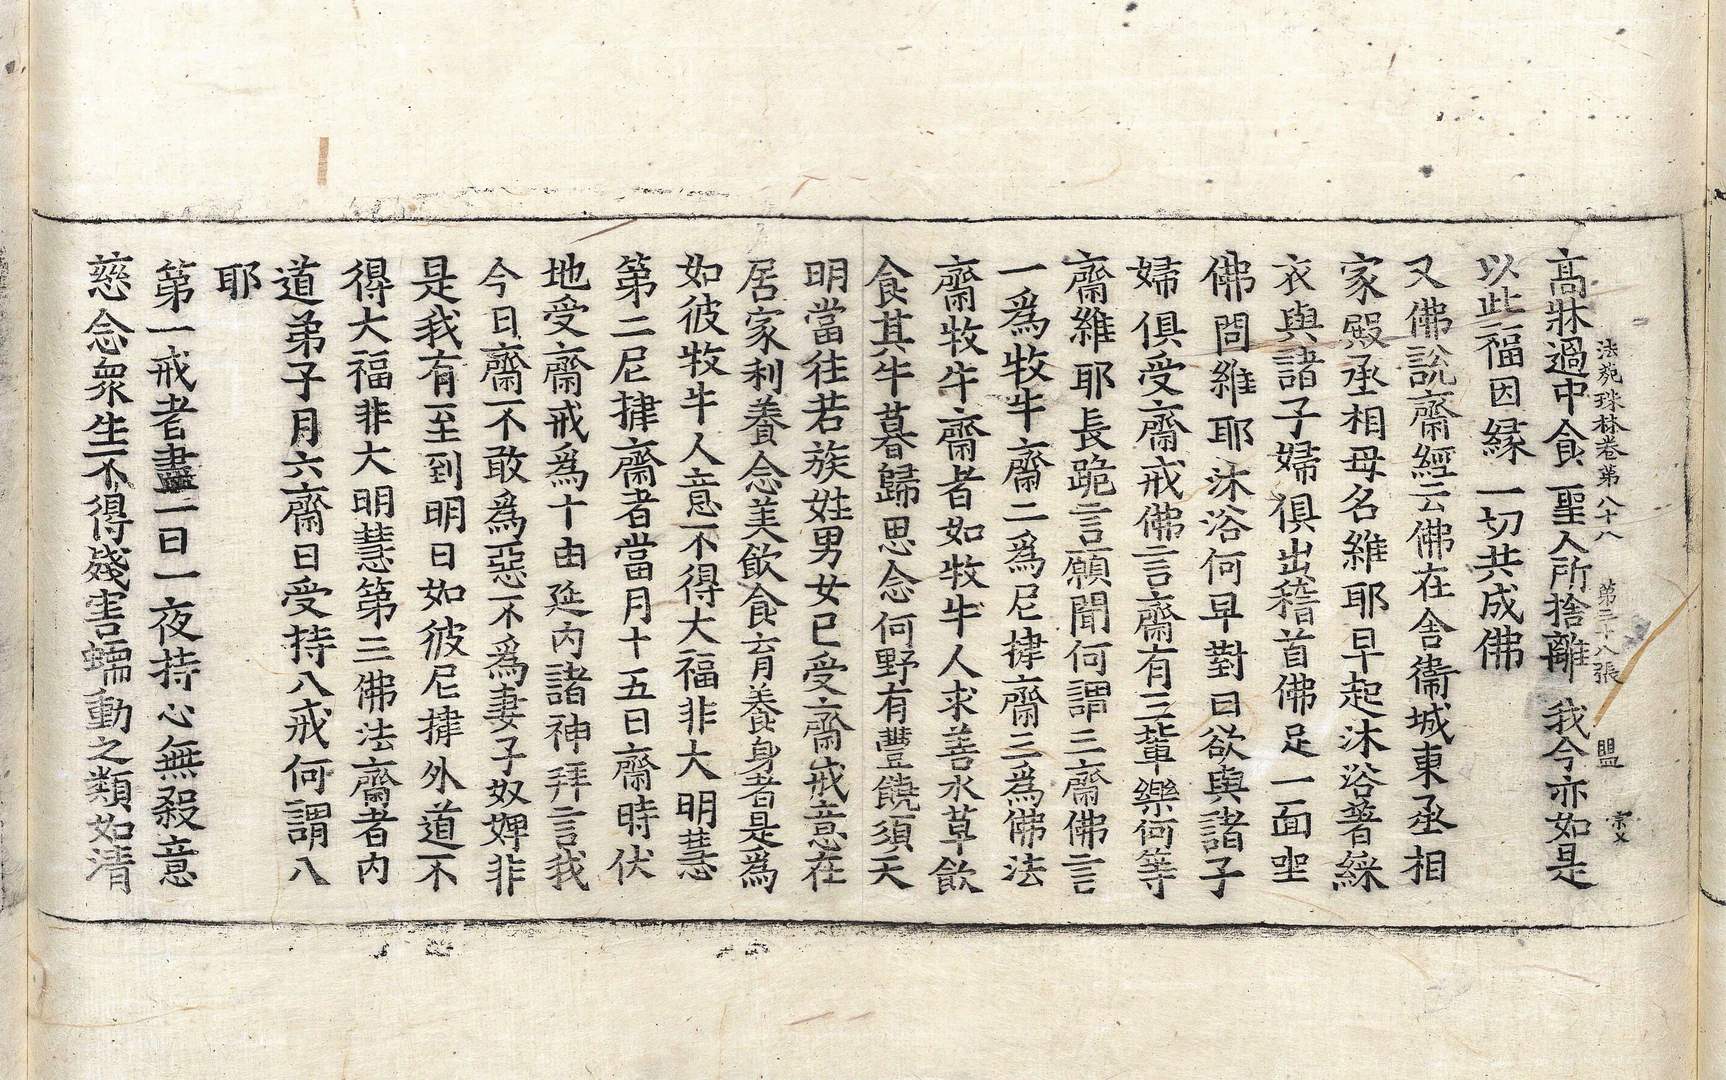 法苑珠林卷第八十八 第三十八張 盟 宗乂
高牀過中食 聖人所捨離 我今亦如是
以此福因縁 一切共成佛
又佛說齋經云佛在舍衞城東丞相
家殿丞相母名維耶早起沐浴著綵
衣與諸子婦俱出稽首佛足一面坐
佛問維耶沐浴何早對曰欲與諸子
婦俱受齋戒佛言齋有三軰樂何等
齋維耶長跪言願聞何謂三齋佛言
一爲牧牛齋二爲尼揵齋三爲佛法
齋牧牛齋者如牧牛人求善水草飲
食其牛暮歸思念何野有豐饒須天
明當往若族姓男女已受齋戒意在
居家利養念美飲食育養身者是爲
如彼牧牛人意不得大福非大明慧
第二尼揵齋者當月十五日齋時伏
地受齋戒爲十由延內諸神拜言我
今日齋不敢爲惡不爲妻子奴婢非
是我有至到明日如彼尼揵外道不
得大福非大明慧第三佛法齋者內
道弟子月六齋日受持八戒何謂八
耶
第一戒者盡一日一夜持心無殺意
慈念衆生不得殘害蠕動之類如清